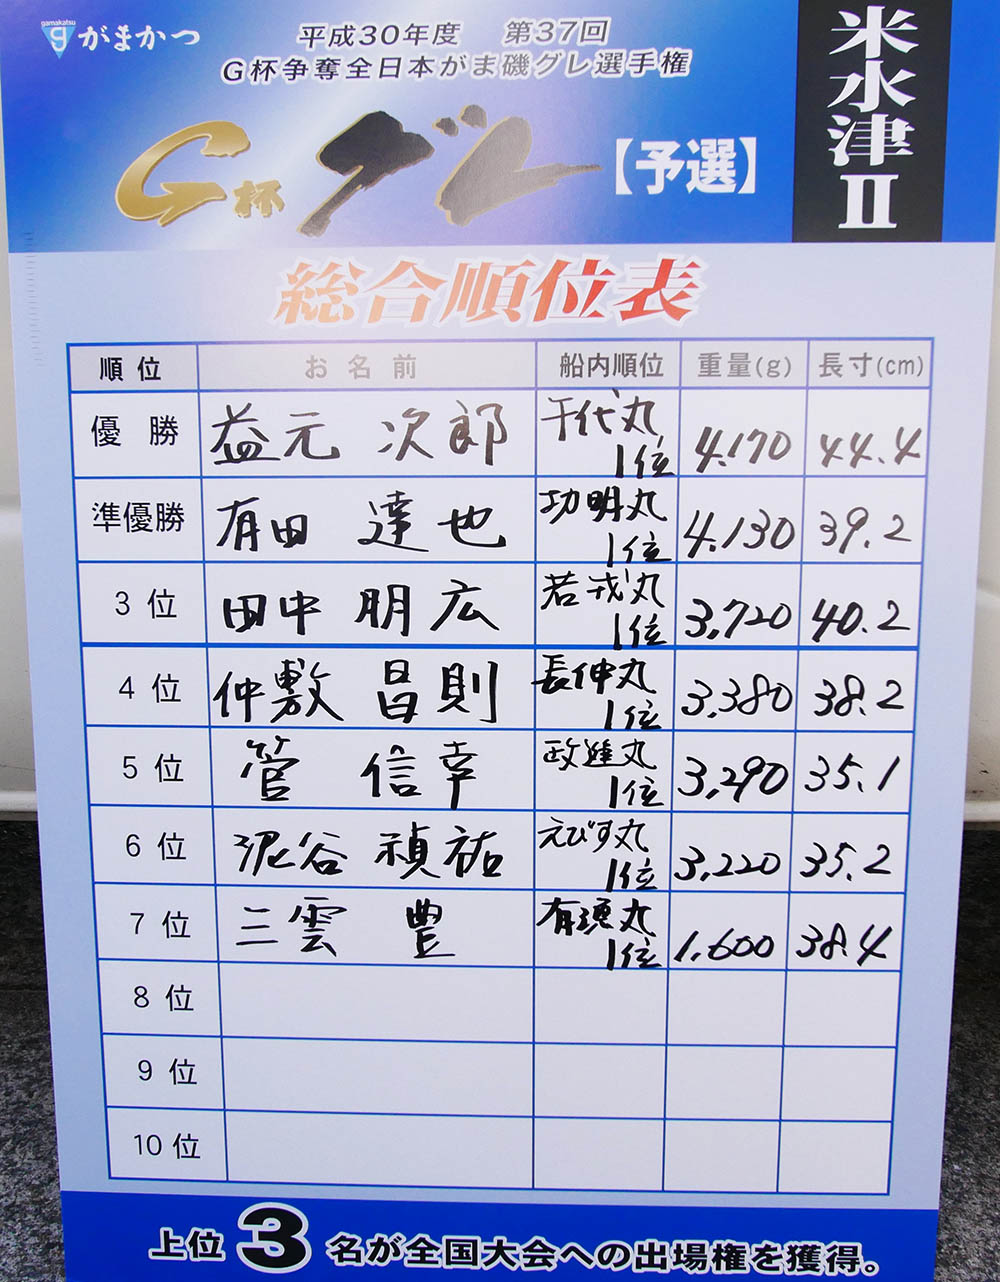 gamakatsu
g がまかつ
平成30年度 第37回
G杯争奪全日本がま磯グレ選手権
米水津II
G杯 グレ【予選】
総合順位表
順位 お名前 船内順位 重量(g) 長寸(cm)
優勝 益元 次郎 千代丸 1位 4.170 44.4
準優勝 有田 達也 功明丸 1位 4.130 39.2
3位 田中 朋広 若戎丸 1位 3,720 40.2
4位 仲敷 昌則 長伸丸 1位 3,380 38.2
5位 管 信幸 政進丸 1位 3,290 35.1
6位 泥谷 禎祐 えびす丸 1位 3,220 35.2
7位 三雲 豊 1位 1,600 38.4
8位
9位
10位
上位3名が全国大会への出場権を獲得。